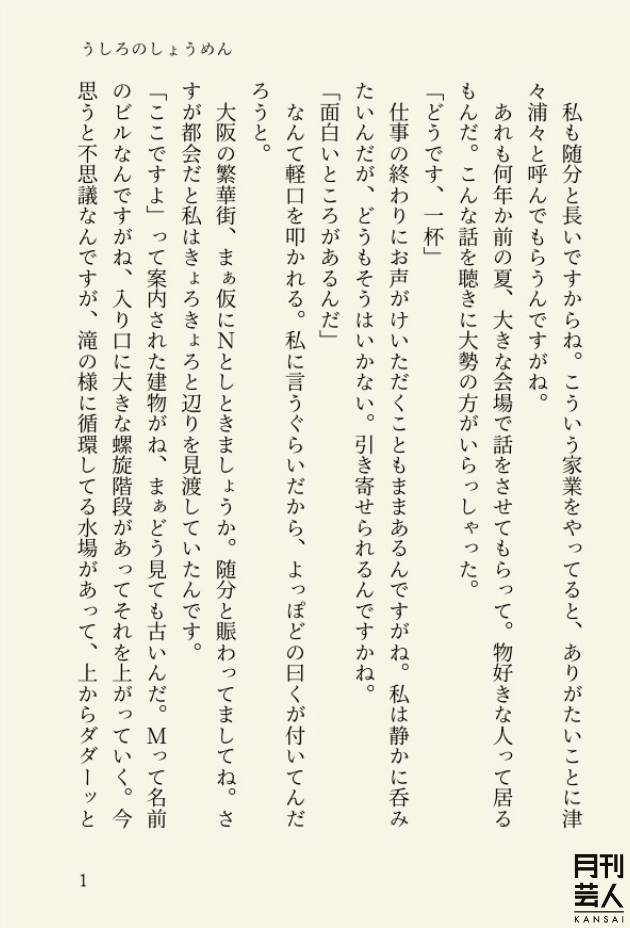 うしろのしょうめん
　私も随分と長いですからね。こういう家業をやってると、ありがたいことに津
々浦々と呼んでもらうんですがね。
　あれも何年か前の夏、大きな会場で話をさせてもらって。物好きな人って居る
もんだ。こんな話を聴きに大勢の方がいらっしゃった。
「どうです、一杯」
　仕事の終わりにお声がけいただくこともままあるんですがね。私は静かに呑み
たいんだが、どうもそうはいかない。引き寄せられるんですかね。
「面白いところがあるんだ」
　なんて軽口を叩かれる。私に言うぐらいだから、よっぽどの曰くが付いてんだ
ろうと。
　大阪の繁華街、まぁ仮にNとしときましょうか。随分と賑わってましてね。さ
すが都会だと私はきょろきょろと辺りを見渡していたんです。
「ここですよ」って案内された建物がね、まぁどう見ても古いんだ。Mって名前
のビルなんですがね、入り口に大きな螺旋階段があってそれを上がっていく。今
思うと不思議なんですが、滝の様に循環してる水場があって、上からダダーッと
1
月刊
芸人
KANSAI